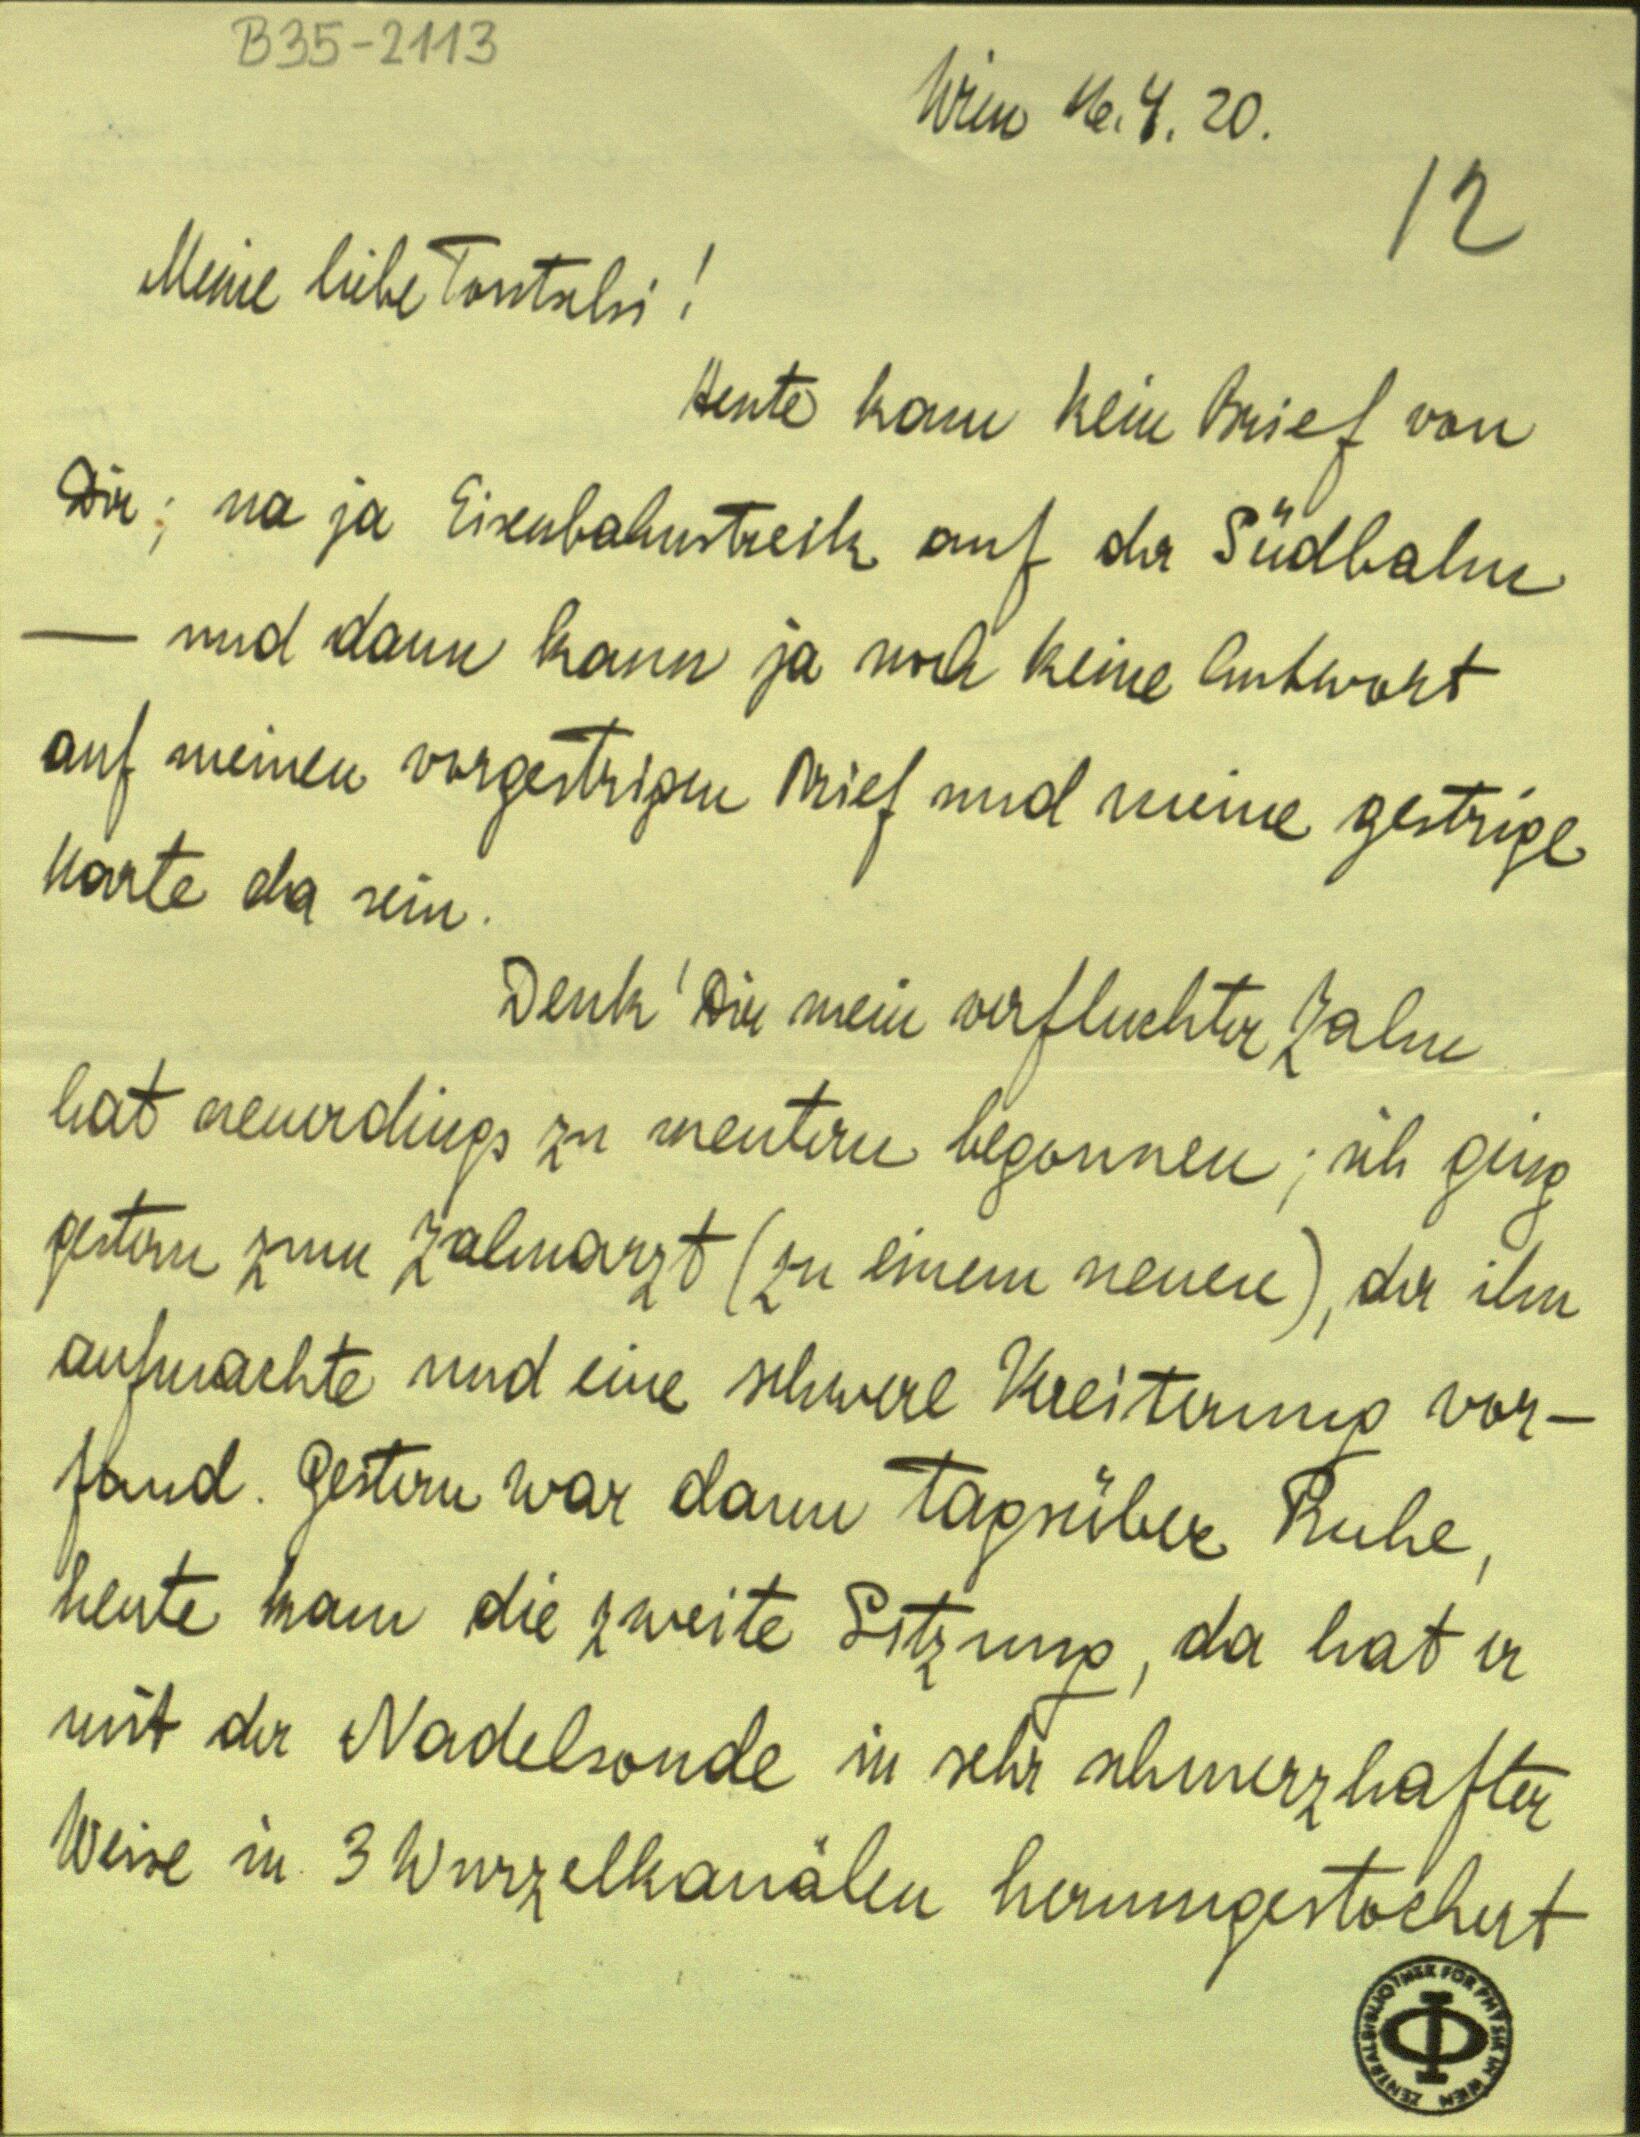 B35-2113
Wien 16.4.20.
12
Meine liebe !
Heute kam kein Brief von
Dir; na ja Eisenbahnstreik auf der Südbahn
— und dann kann ja noch keine Antwort
auf meinen vorgestrigen Brief und meine gestrige
Karte da sein.
Denk' Dir mein verfluchter Zahn
hat neuerdings zu meutern begonnen; ich ging
gestern zum Zahnarzt (zu einem neuen), der ihn
aufmachte und eine schwere Vereiterung vor-
fand. Gestern war dann tagsüber Ruhe,
heute kam die zweite Sitzung, da hat er
mit der Nadelsonde in sehr schmerzhafter
Weise in 3 Wurzelkanälen herumgestochert
ZENTRALBIBLIOTHEK FÜR PHYSIK IN WIEN